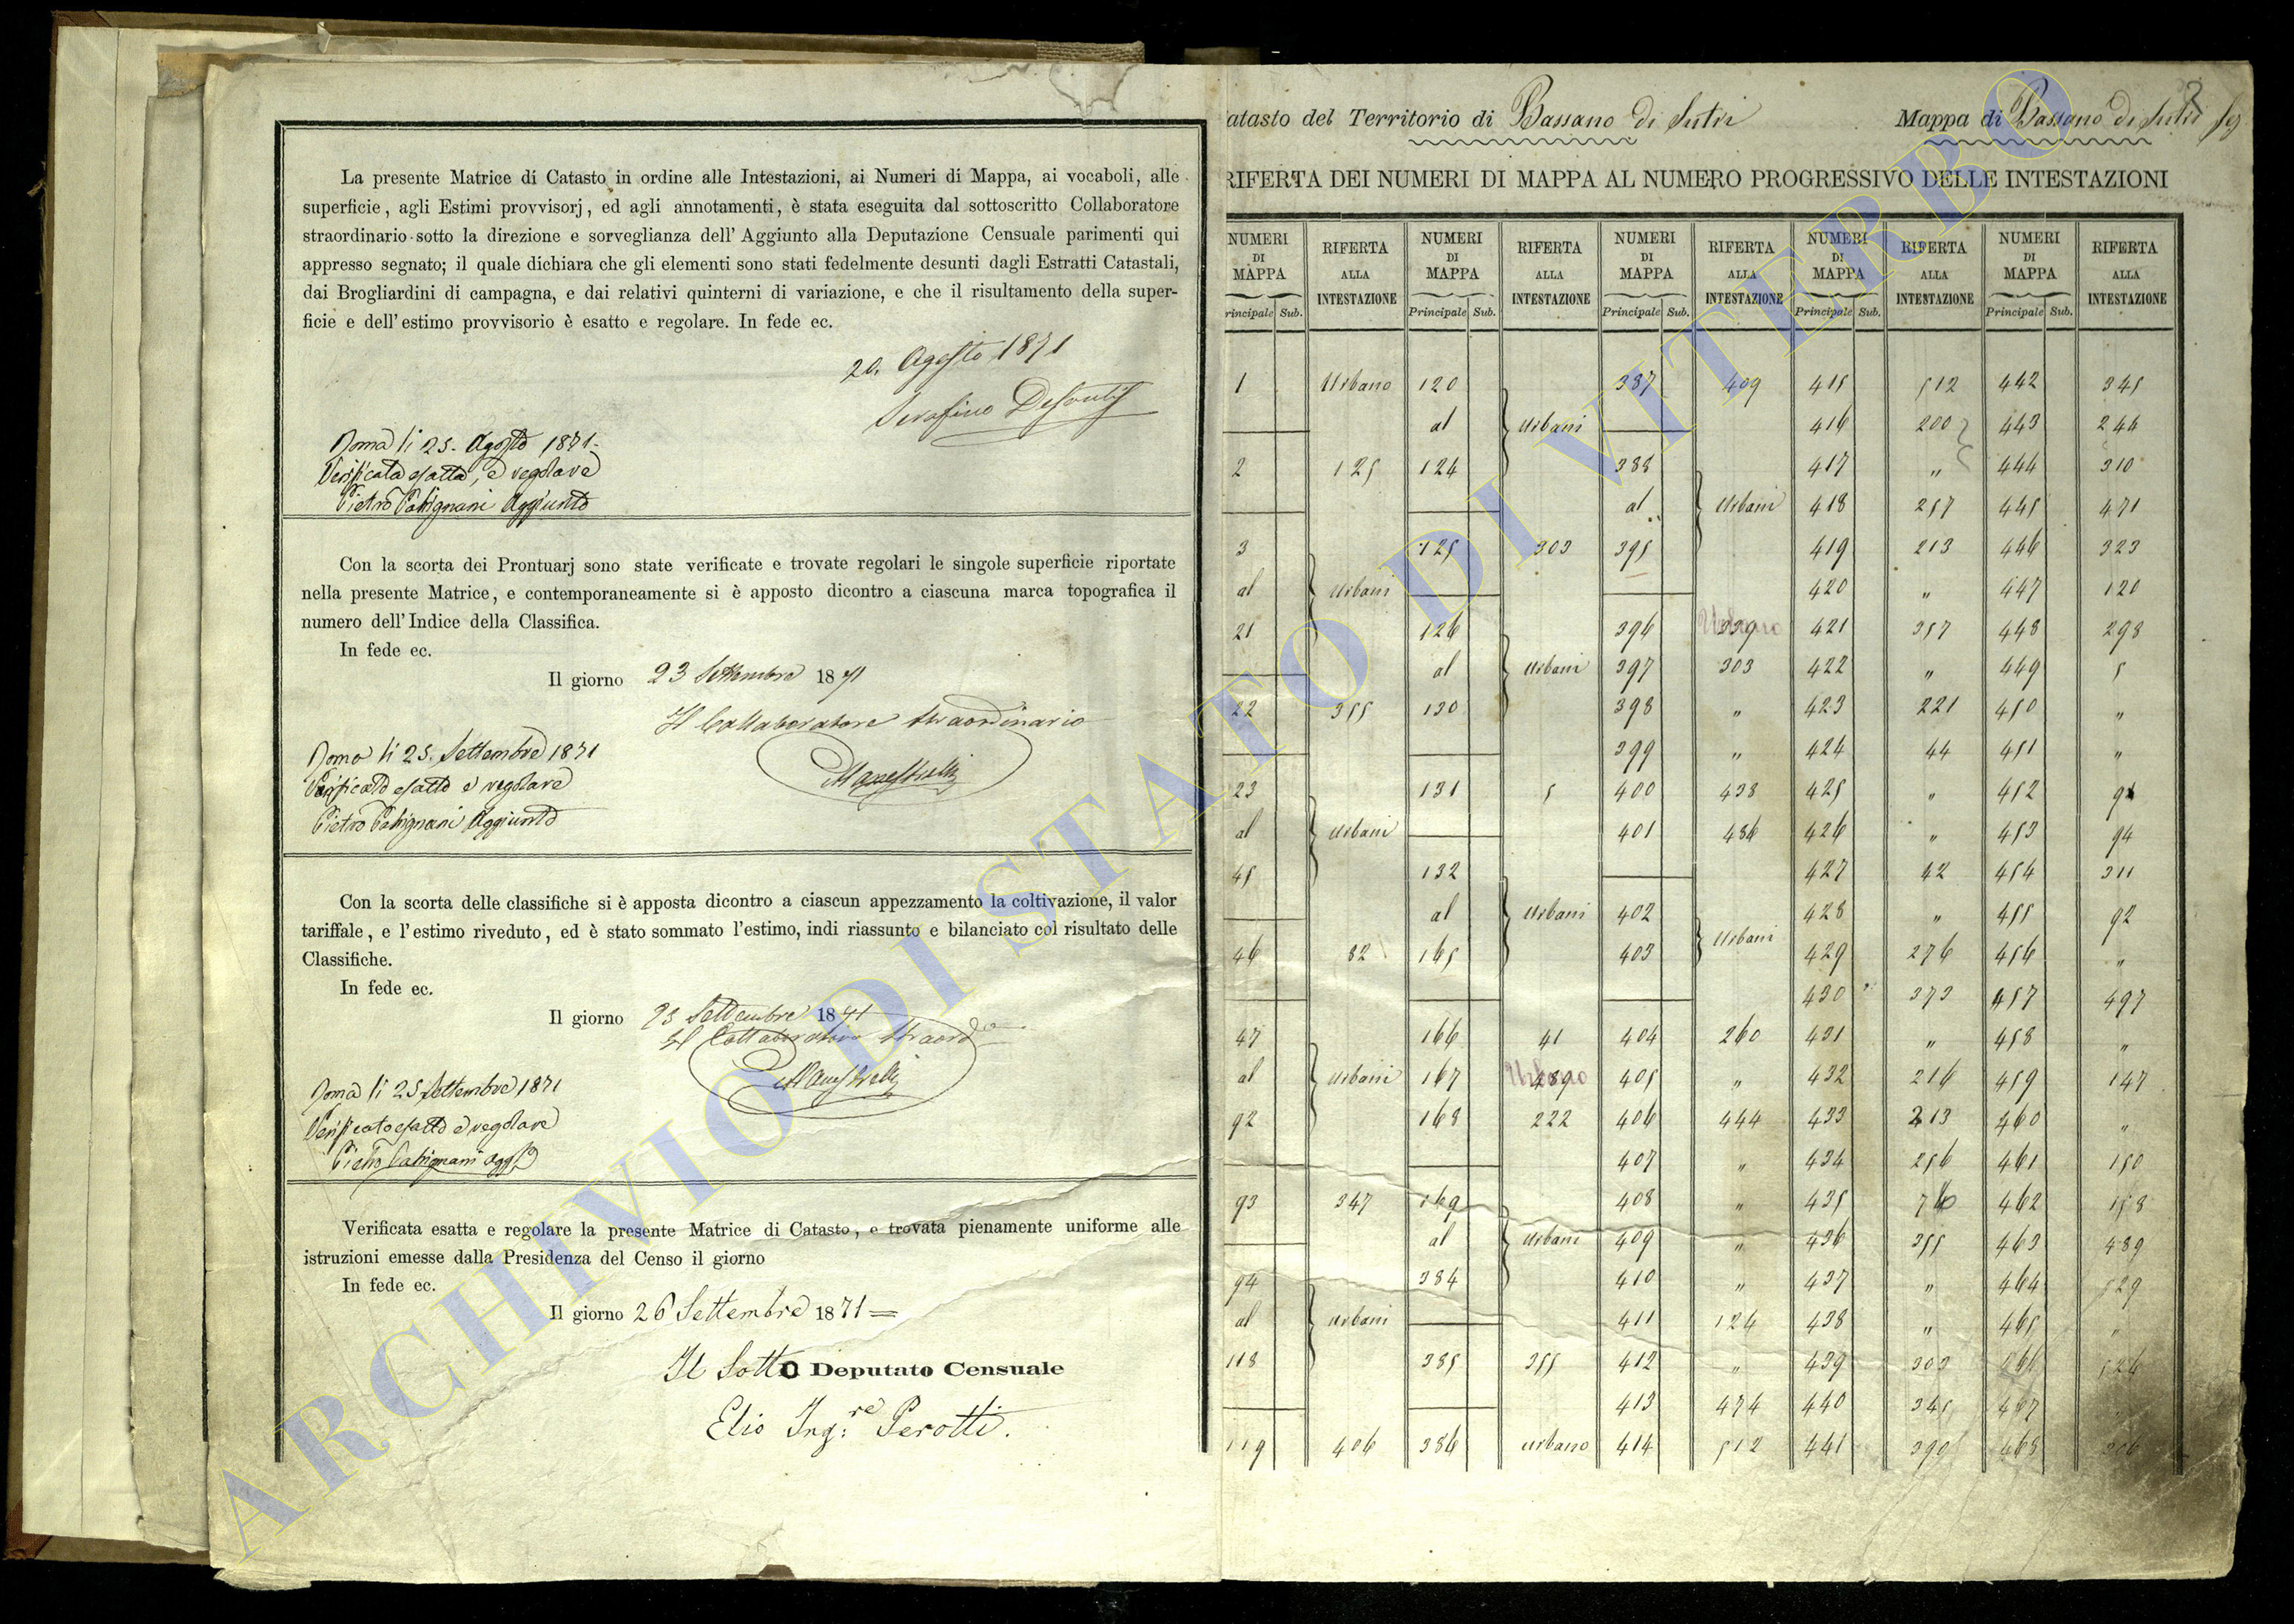 La presente Matrice di Catasto in ordine alle Intestazioni, ai Numeri di Mappa, ai vocaboli, alle
superficie, agli Estimi provvisorj, ed agli annotamenti, è stata eseguita dal sottoscritto Collaboratore
straordinario sotto la direzione e sorveglianza dell' Aggiunto alla Deputazione Censuale parimenti qui
appresso segnato; il quale dichiara che gli elementi sono stati fedelmente desunti dagli Estratti Catastali,
dai Brogliardini di campagna, e dai relativi quinterni di variazione, e che il risultamento della super-
ficie e dell' estimo provvisorio è esatto e regolare. In fede ec.
20. Agosto 1871
Serafino
Roma li 25. Agosto 1871.
Verificata esatta, e regolare
Pietro Aggiunto
Con la scorta dei Prontuarj sono state verificate e trovate regolari le singole superficie riportate
nella presente Matrice, e contemporaneamente si è apposto dicontro a ciascuna marca topografica il
numero dell' Indice della Classifica.
In fede ec.
Il giorno 23 Settembre 1871
Il Collaboratore Straordinario
Roma li 25. Settembre 1871
Verificato esatto e regolare
Pietro Aggiunto
Con la scorta delle classifiche si è apposta dicontro a ciascun appezzamento la coltivazione, il valor
tariffale, e l'estimo riveduto, ed è stato sommato l'estimo, indi riassunto e bilanciato col risultato delle
Classifiche.
In fede ec.
Il giorno 23 Settembre 1871
Il Collaboratore Straord
Roma li 25 Settembre 1871
Verificato esatto e regolare
Pietro
Verificata esatta e regolare la presente Matrice di Catasto, e trovata pienamente uniforme alle
istruzioni emesse dalla Presidenza del Censo il giorno
In fede ec.
Il giorno 26 Settembre 1871 =
Il Sotto Deputato Censuale
Elio Ing:re Perotti.
atasto del Territorio di Bassano di Sutri Mappa di Bassano di Sutri
RIFERTA DEI NUMERI DI MAPPA AL NUMERO PROGRESSIVO DELLE INTESTAZIONI
NUMERI DI MAPPA RIFERTA ALLA INTESTAZIONE NUMERI DI MAPPA RIFERTA ALLA INTESTAZIONE NUMERI DI MAPPA RIFERTA ALLA INTESTAZIONE NUMERI DI MAPPA RIFERTA ALLA INTESTAZIONE NUMERI DI MAPPA RIFERTA ALLA INTESTAZIONE
rincipale Sub. Principale Sub. Principale Sub. Principale Sub. Principale Sub.
1 Urbano 120 387 409 415 512 442 345
al Urbani 416 200 443 244
2 125 124 388 417 " 444 310
al Urbani 418 257 445 471
3 125 303 395 419 213 446 323
al Urbani 420 " 447 120
21 126 396 Urbano 421 357 448 298
al Urbani 397 303 422 " 449 5
22 355 130 398 " 423 221 450 "
399 " 424 44 451 "
23 131 5 400 438 425 " 452 91
al Urbani 401 486 426 " 453 94
45 132 427 42 454 311
al Urbani 402 Urbani 428 " 455 92
46 82 165 403 429 276 456 "
430 373 457 497
47 166 41 404 260 431 " 458 "
al Urbani 167 Urbano 405 " 432 216 459 147
92 168 222 406 444 433 213 460 "
407 " 434 256 461 150
93 347 169 408 " 435 76 462 158
al Urbani 409 " 436 355 463 489
94 384 410 " 437 " 464 529
al Urbani 411 124 438 " 465 "
118 385 355 412 " 439 303 466 526
413 474 440 345 467
119 406 386 Urbano 414 512 441 390 468 306
ARCHIVIO DI STATO DI VITERBO